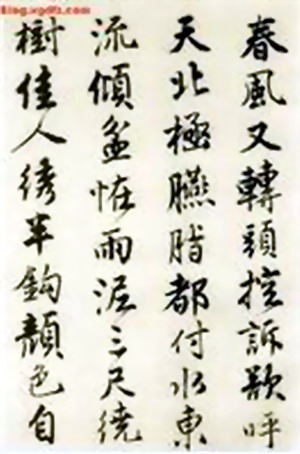 春風又轉頭控訴歎呼
天北極臙脂都付水東
流傾盆恠雨泥三尺繞
樹佳人綉半鈎顏色自